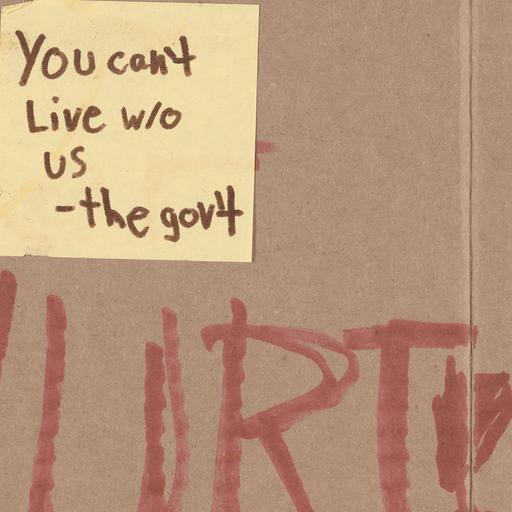 You can't
Live w/o
us
-the gov't